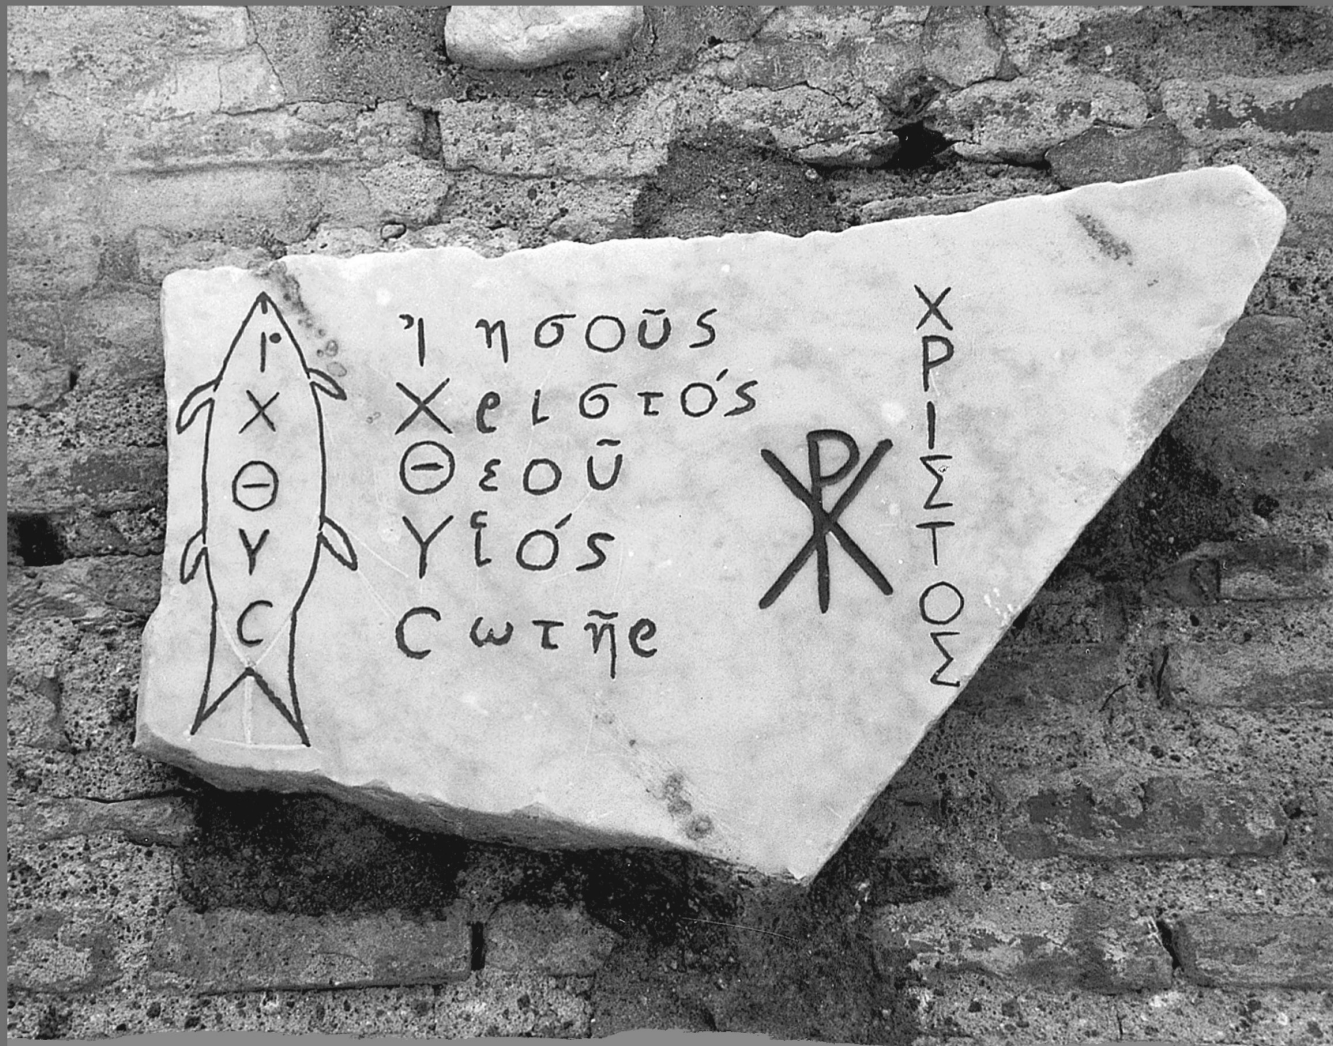 Ι
Χ
Θ
Υ
C
Ἰησοῦς
Χριστός
Θεοῦ
Υἱός
Cωτῆρ
☧
Χ
Ρ
Ι
Σ
Τ
Ο
Σ